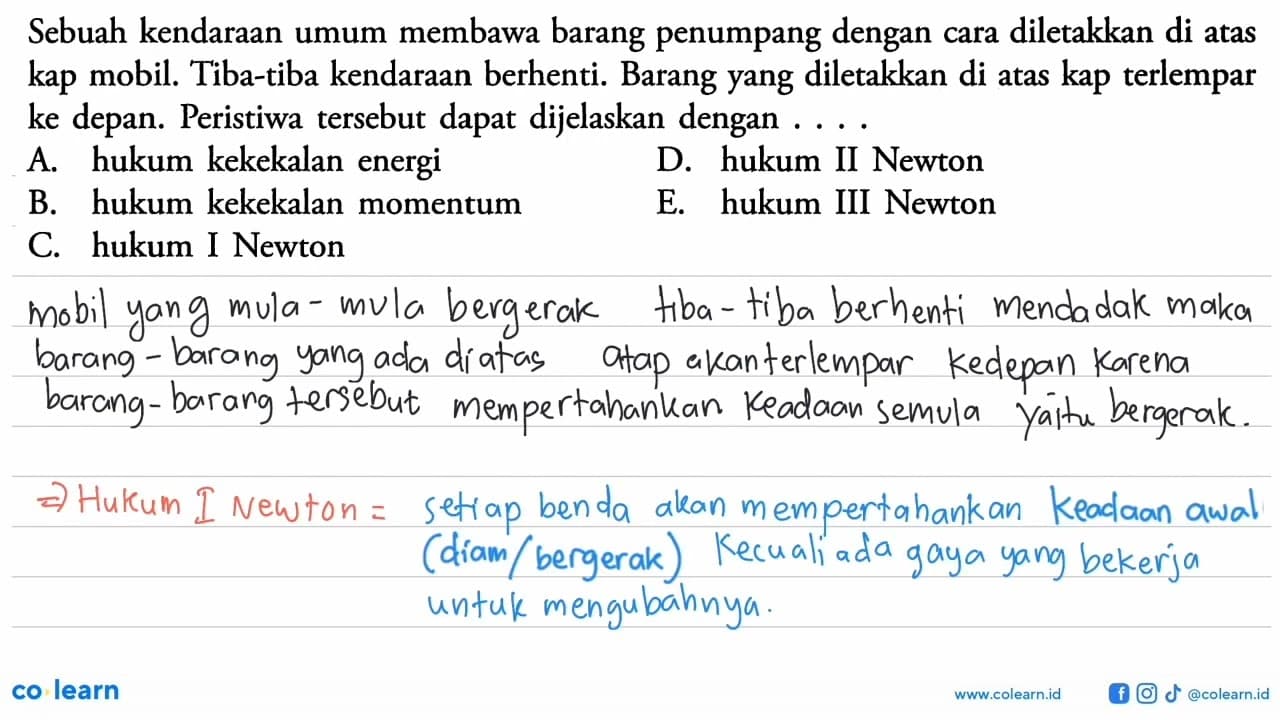 Sebuah kendaraan umum membawa barang penumpang dengan cara diletakkan di atas
kap mobil. Tiba-tiba kendaraan berhenti. Barang yang diletakkan di atas kap terlempar
ke depan. Peristiwa tersebut dapat dijelaskan dengan . . . .
A. hukum kekekalan energi D. hukum II Newton
B. hukum kekekalan momentum E. hukum III Newton
C. hukum I Newton
mobil yang mula-mula bergerak tiba-tiba berhenti mendadak maka
barang-barang yang ada diatas atap akan terlempar kedepan karena
barang-barang tersebut mempertahankan keadaan semula yaitu bergerak.
=> Hukum I Newton = setiap benda akan mempertahankan keadaan awal
(diam/bergerak) kecuali ada gaya yang bekerja
untuk mengubahnya.
co learn www.colearn.id @colearn.id